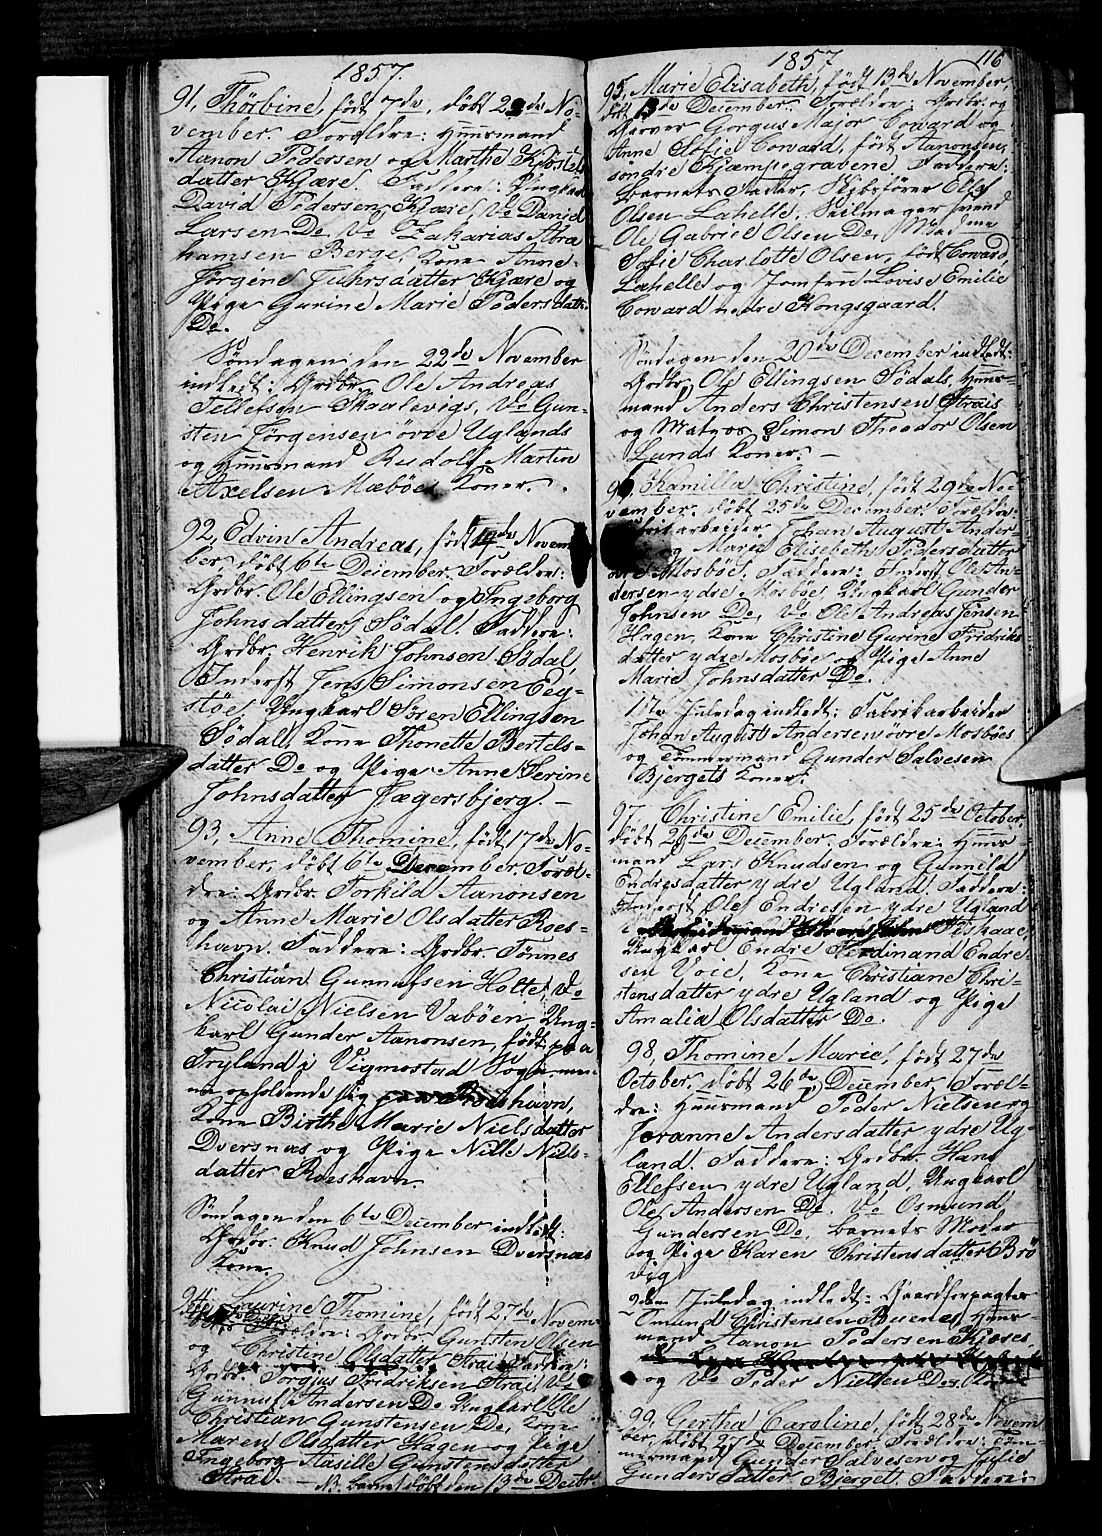 1857.
91, Thorbine, født 7de, døbt 22de No-
vember. Forældre: Huusmand
Aanon Pedersen og Marthe
datter Kjære. Faddere: Ungkarl
David Pedersen Kjære, Do Daniel
Larsen Do, Do Zakarias Abra
hamsen Berge, Kone Anne
Jørgine Juhrsdatter Kjære og
Pige Gurine Marie Pedersdatter
Do.
Søndagen den 22de November
indledt: Grdbr. Ole Andreas
Tellefsen Skralevigs, Do Gun-
sten Jørgensen övre Uglands
og Huusmand Rudolf Martin
Axelsen Mæbøes Koner.
92, Edvin Andreas, født November
ber, døbt 6te December. Forældre:
Grdbr. Ole Ellingsen og Ingeborg
Johnsdatter Södal. Faddere:
Grdbr. Henrik Johnsen Södal,
Inderst Jens Simonsen Eeg-
støe, Ungkarl Sören Ellingsen
Södal, Kone Thonette Bertels-
datter Do og Pige Anne Serine
Johnsdatter Jægersbjerg. —
93, Anne Thomine, født 17de No-
vember, døbt 6te December. Foræl-
dre: Grdbr. Torkild Aanonsen
og Anne Marie Olsdatter Roes-
havn. Faddere: Grdbr. Tønnes
Christian Gunnufsen Holte, Do
Nicolai Nielsen Vabøen, Ung-
karl Gunder Aanonsen, født paa
Tryland i Vigmostad Sogn,
opholdende sig Roeshavn,
Kone Birthe Marie Nielsdatter
Dversnæs og Pige Nille Niels-
datter Roeshavn.
Søndagen den 6te December indledt:
Grdbr. Knud Johnsen Dversnæs
Kone.
94, Laurine Thomine, født 27de Novem
Forældre: Grdbr Gunsten Olsen
og Christine Olsdatter Strai. Faddere:
Grdbr. Torgus Fredriksen Strai, Do
Gunnuf Andersen Do, Ungkarl Ole
Christian Gunstensen Do, Kone
Maren Olsdatter Hagen og Pige
Ingeborg Aasille Gunstensdatter
Strai. — NB. barnet døbt den 13de Decbr.
1857 116
95, Marie Elisabeth, født 13de November,
døbt 13de December. Forældre: Grdbr. og
Garver Gorgus Major Coward og
Anne Sofie Coward, født Aanonsen,
søndre Kjæmpegravene. Faddere:
Barnets Fader, Skibsfører Elef
Olsen Lahelle, Seilmagersvend
Ole Gabriel Olsen Do, Madame
Sofie Charlotte Olsen, født Coward,
Lahelle og Jomfru Lovise Emilie
Coward nedre Kongsgaard.
Søndagen den 20de December indledt:
Grdbr. Ole Ellingsen Södals, Huus-
mand Anders Christensen Strais
og Matros Simon Theodor Olsen
Lunds Koner. —
96, Kamilla Christine, født 29de No-
vember, døbt 25de December. Forældre:
Fabrikarbeider Johan August Ander-
og Marie Elisabeth Pedersdatter
Mosbøe. Faddere: Inderst Ole An-
dersen ydre Mosbøe, Ungkarl Gunder
Johnsen Do, Do Ole Andreas Jensen
Hagen, Kone Christine Gurine Fredriks-
datter ydre Mosbøe og Pige Anne
Marie Johnsdatter Do.
1ste Juledag indledt: Fabrikarbeider
Johan August Andersen övre Mosbøes
og Tømmermand Gunder Salvesen
Bjergets Koner.
97, Christine Emilie, født 25de October,
døbt 26de December. Forældre: Huus-
mand Lars Knudsen og Gunnild
Endresdatter ydre Ugland. Faddere:
Inderst Ole Endresen ydre Ugland
Fiskaae,
Ungkarl Endre Ferdinand Endre-
sen Voie, Kone Christiane Chri-
stensdatter ydre Ugland og Pige
Amalia Olsdatter Do.
98, Thomine Marie, født 27de
October, døbt 26de December. Foræl-
dre: Huusmand Peder Nielsen og
Joranne Andersdatter ydre Ug-
land. Faddere: Grdbr. Hans
Ellefsen ydre Ugland, Ungkarl
Ole Andersen Do. Do Osmund
Gundersen Do, Barnets Moder
og Pige Karen Christensdatter Brö
vig.
2den Juledag indledt: Gaardforpagter
Omund Christensen Buenes, Huus
mand Aanon Pedersen Kjæres
og Do Peder Nielsen Do,
99, Gertha Caroline, født 28de Novem
ber, døbt 27de December. Forældre: Töm-
mermand Gunder Salvesen og Sofie
Gundersdatter Bjerget. Faddere: